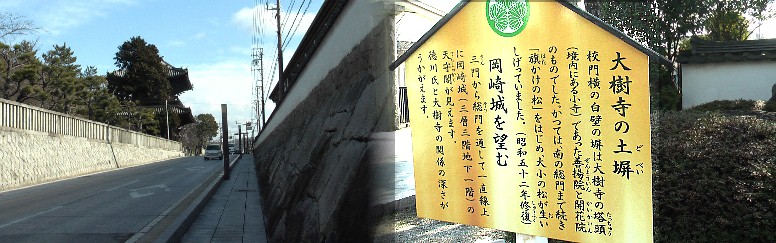 大樹寺の土塀
どべい
校門横の白壁の塀は大樹寺の塔頭
たっちゅう
(境内にある小寺)であった善揚院と開花院
ぜんよういん
かいかいん
のものでした。かつては、南の総門まで続き
「旗かけの松」をはじめ大小の松が生い
はた
しげっていました。(昭和五十二年修復)
しゅうふく
岡崎城を望む
三門から総門を通して一直線上
さん
そう
に岡崎城(三層三階地下一階)の
天守閣が見えます。
徳川氏と大樹寺の関係の深さが
うかがえます。